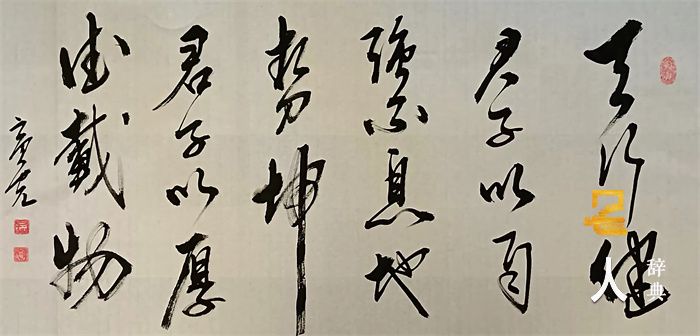 天行健
君子以自
強不息地
勢坤
君子以厚
德載物
人
辞典